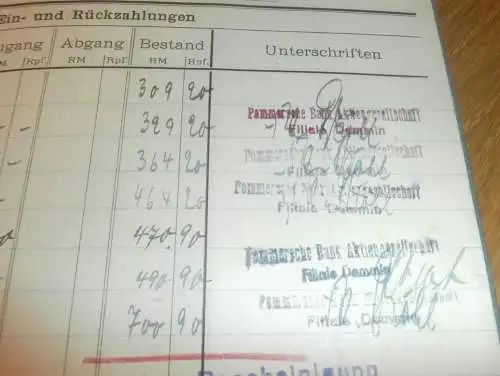 Ein- und Rückzahlungen
gang Abgang Bestand Unterschriften
RM Rpf. RM Rpf. RM Rpf.
309 20
Pommersche Bank Aktiengesellschaft
329 20
Filiale Demmin
Pommersche Bank Aktiengesellschaft
364 20
Filiale Demmin
Pommersche Bank Aktiengesellschaft
464 20
Filiale Demmin
470 90
Pommersche Bank Aktiengesellschaft
Filiale Demmin
490 90
Pommersche
Filiale Demmin
700 90
Bescheinigung